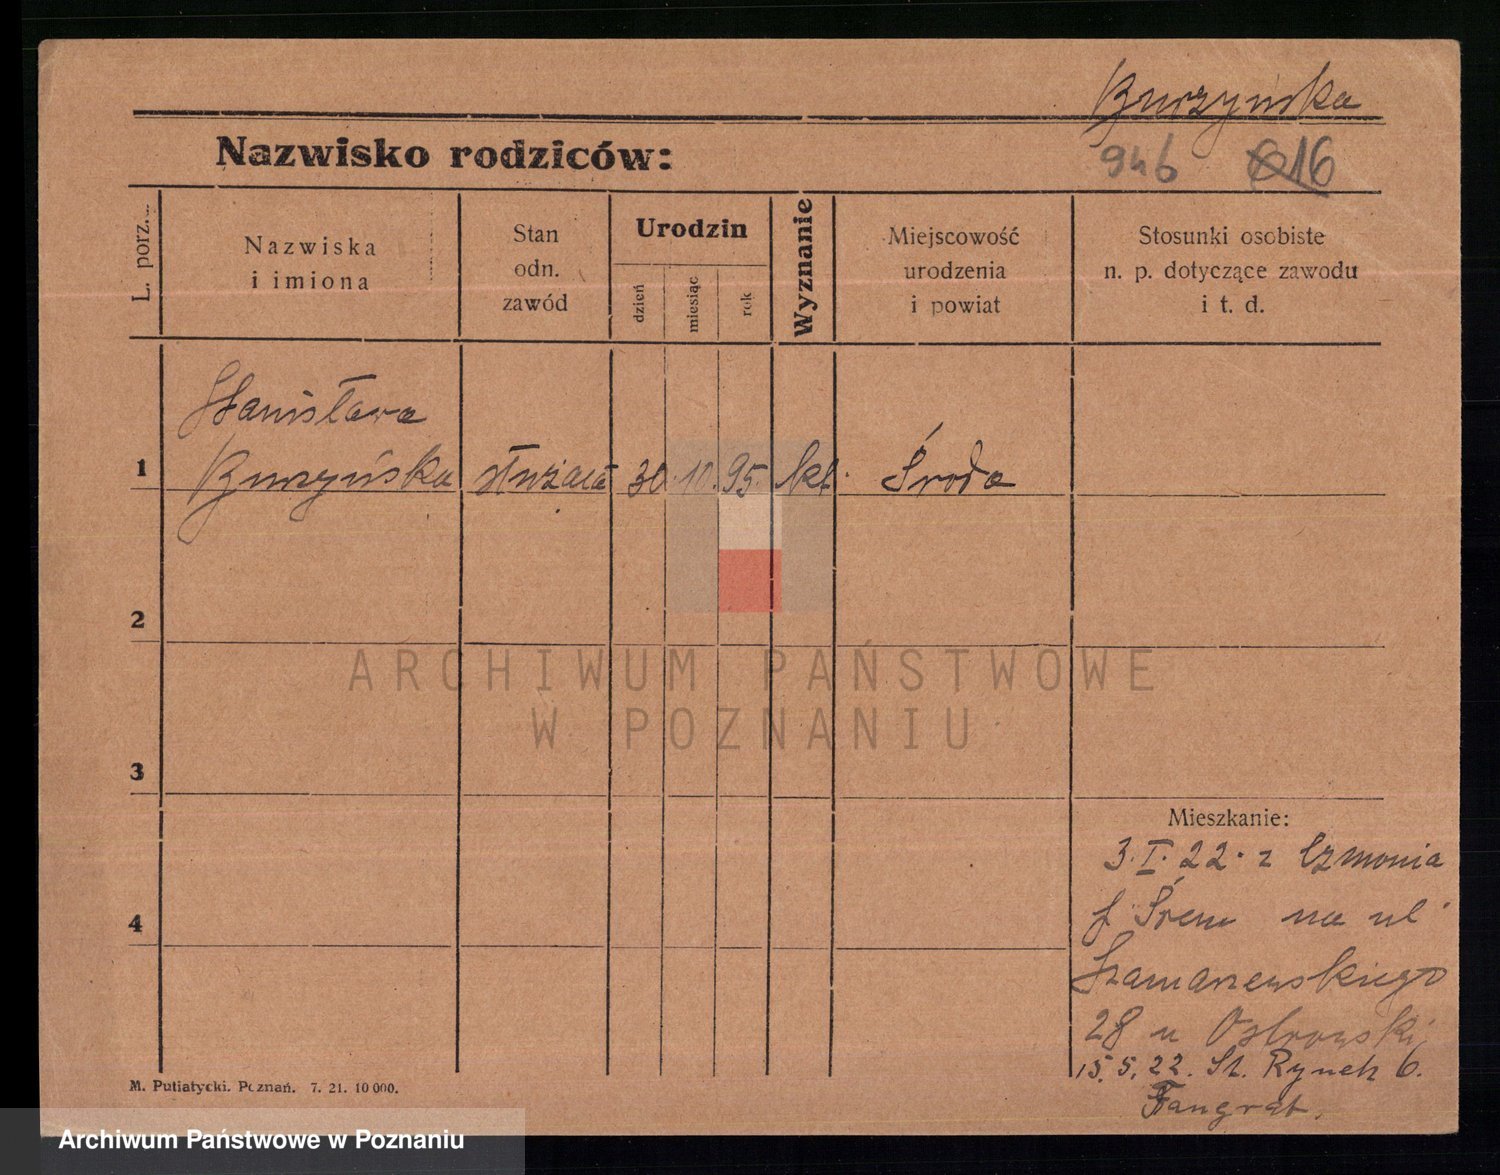 Burzyńska
946 16
Nazwisko rodziców:
L. porz.
Nazwiska
i imiona
Stan
odn.
zawód
Urodzin
dzień
miesiąc
rok
Wyznanie
Miejscowość
urodzenia
i powiat
Stosunki osobiste
n. p. dotyczące zawodu
i t. d.
Stanisława
1 Burzyńska służąca 30. 10. 95. kt. Środa
2
3
4
ARCHIWUM PAŃSTWOWE
W POZNANIU
Mieszkanie:
3. I. 22. z Czmonia
Śrem na ul.
Szamarzewskiego
28 u Ostrowski
15. 5. 22. St. Rynek 6.
M. Putiatycki. Poznań. 7. 21. 10 000.
Archiwum Państwowe w Poznaniu